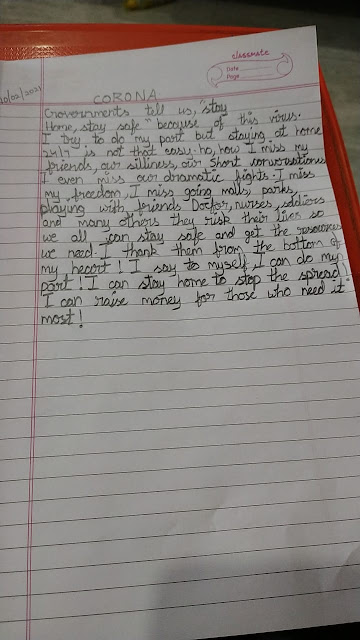 classmate
Date
Page
10/02/2021
CORONA
Governments tell us, "stay
Home, stay safe" because of this virus.
I try to do my part but staying at home
24/7 is not that easy. ho, how I miss my
friends, our silliness, our short conversations
I even miss our dramatic fights. I miss
my freedom, I miss going malls, parks,
playing with friends. Doctor, nurses, soldiers
and many others they risk their lives so
we all can stay safe and get the resources
we need. I thank them from the bottom of
my heart! I say to myself, I can do my
part! I can stay home to stop the spread!
I can raise money for those who need it
most!